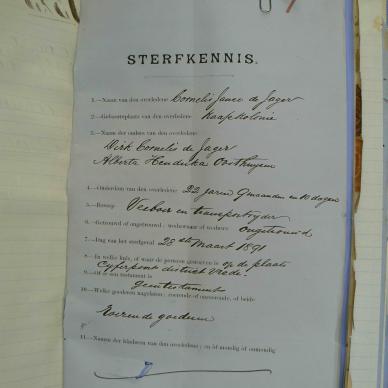 STERFKENNIS.
1.—Naam van den overledene: Cornelis Janse de Jager
2.—Geboorteplaats van den overledene: Kaap Kolonie
3.—Namen der ouders van den overledene:
Dirk Cornelis de Jager
Alberta Hendrika Oosthuysen
4.—Ouderdom van den overledene: 22 jaren 9 maanden en 10 dagen
5.—Beroep: Veeboer en transportryder
6.—Getrouwd of ongetrouwd; weduwnaar of weduwe: Ongetrouwd
7.—Dag van het sterfgeval 28ste Maart 1891
8.—In welke huis, of waar de persoon gestorven is: op de plaats
Cyferpont district Vrede
9.—Of er een testament is
geen testament
10.—Welke goederen nagelaten; roerende of onroerende, of beide
Roerende goederen
11.—Namen der kinderen van den overledene; en of mondig of onmondig